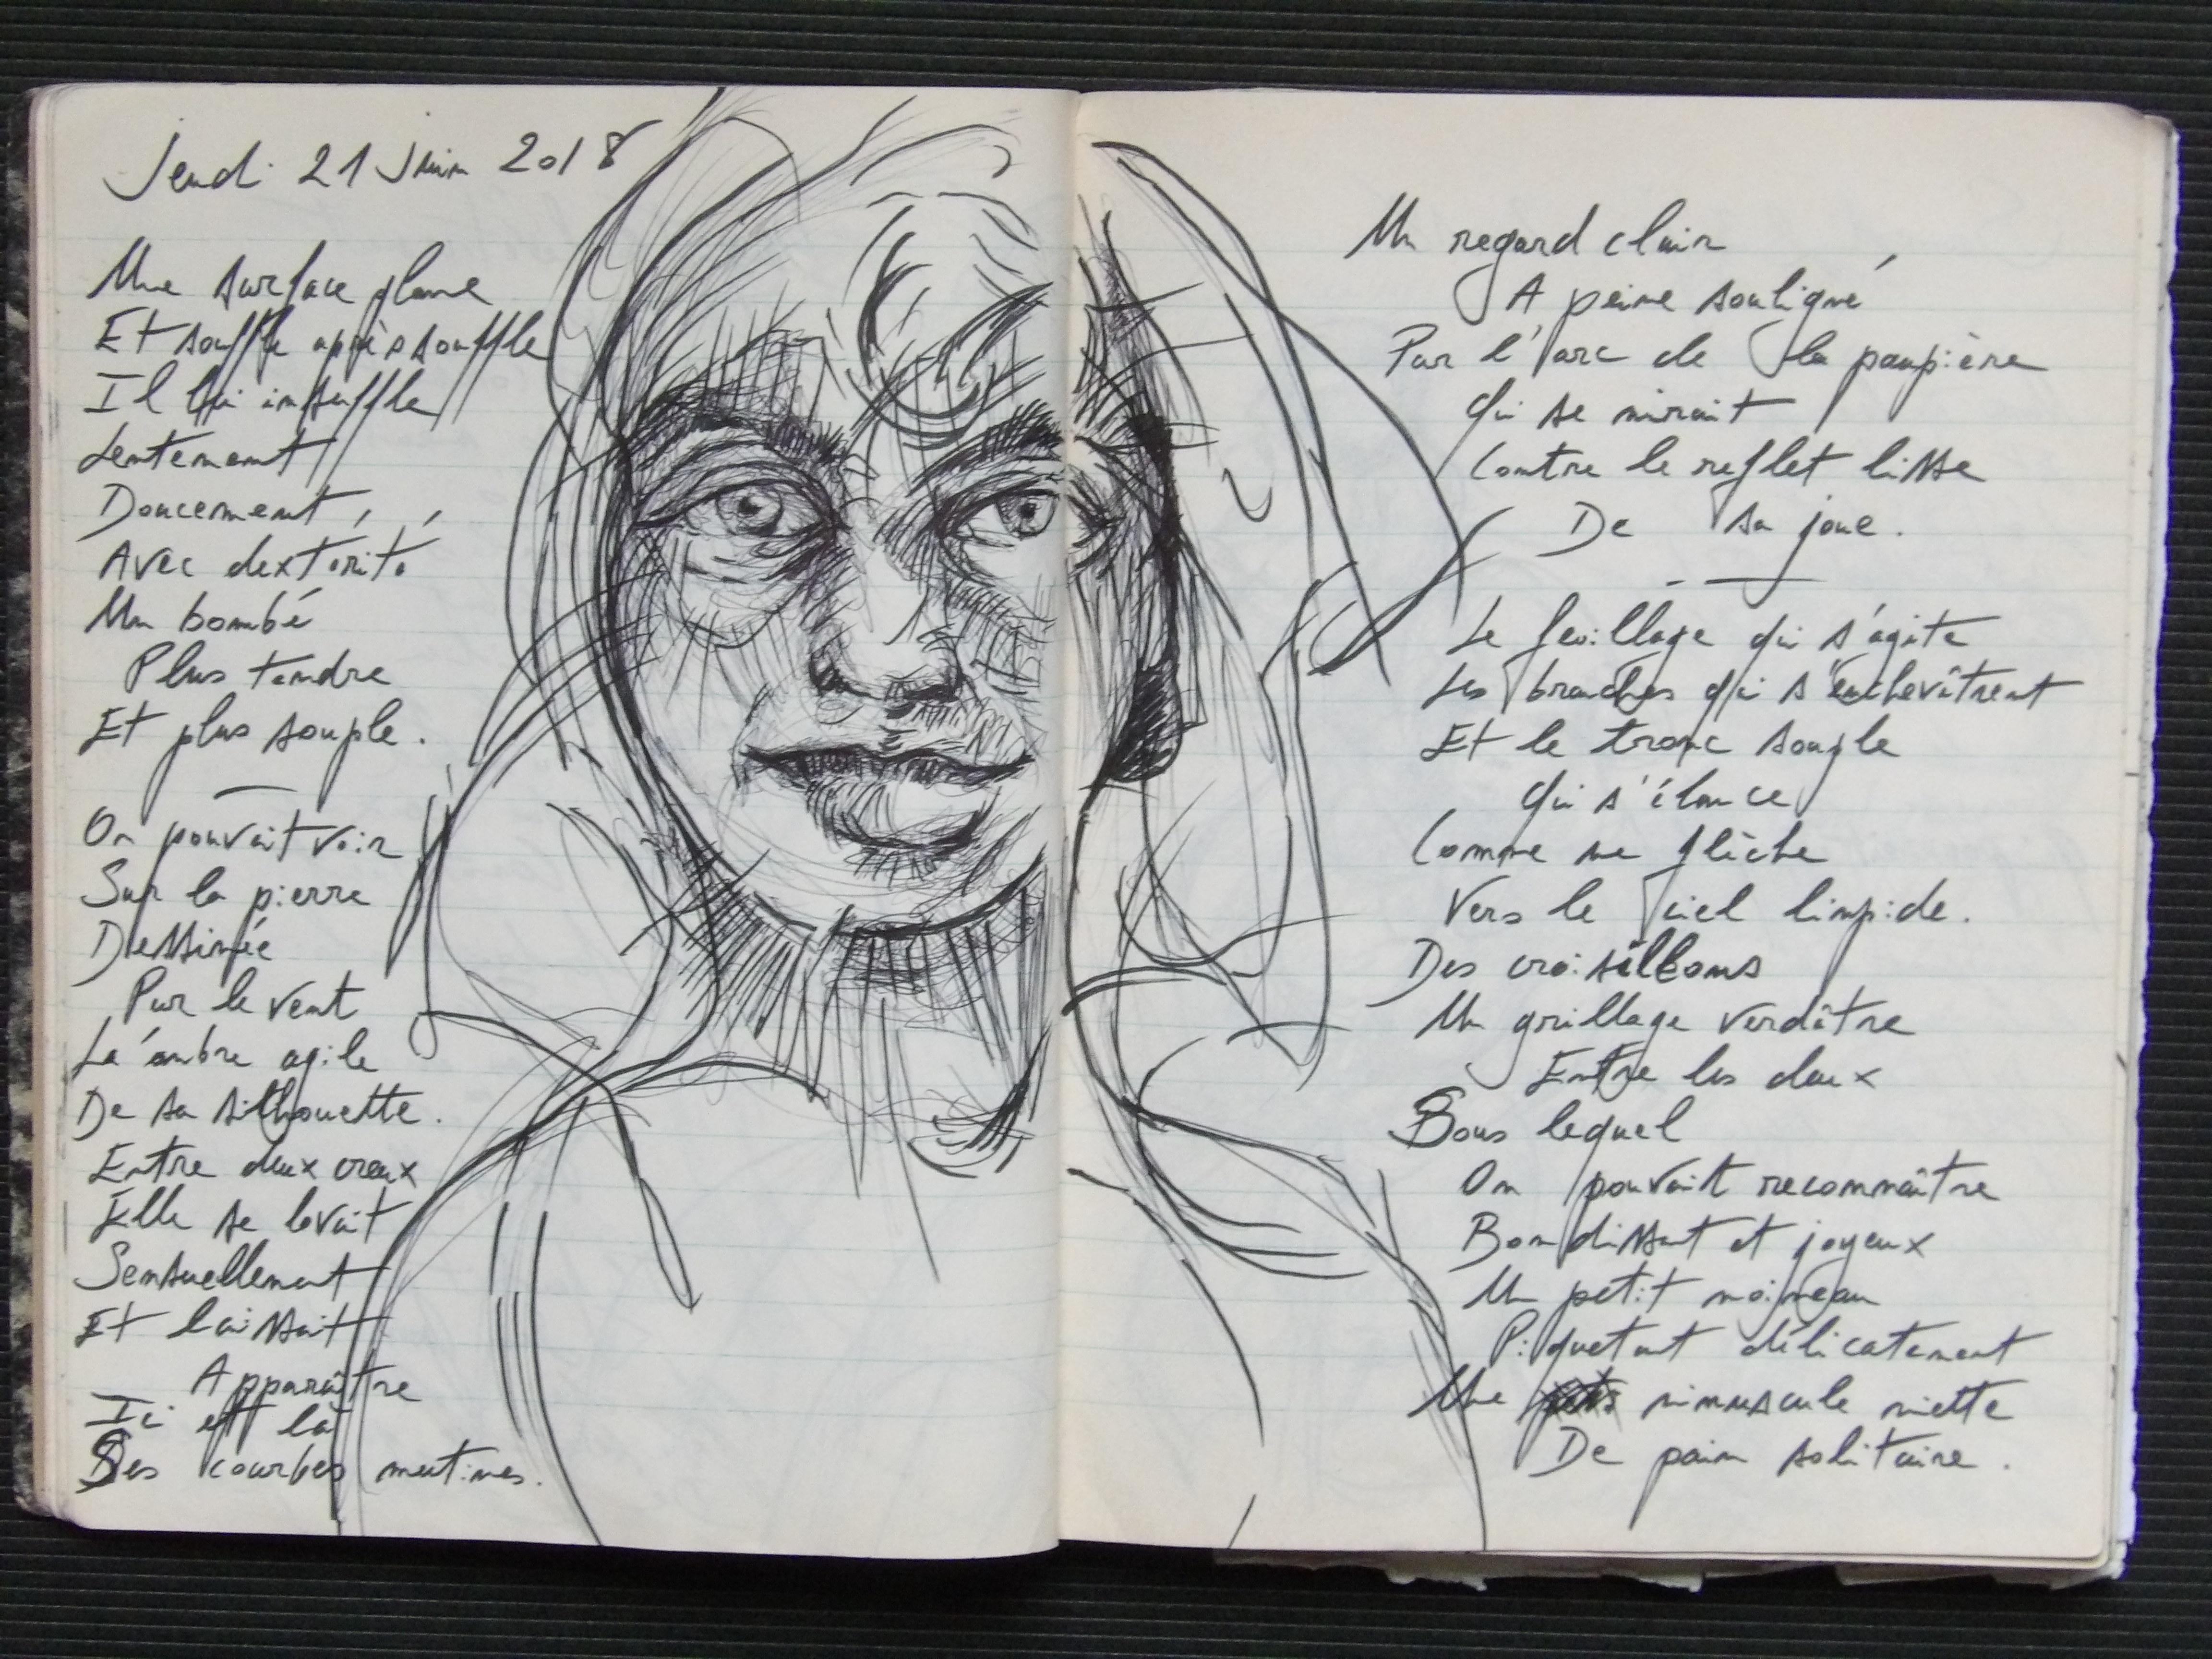 Jeudi 21 Juin 2018
Une surface plane
Et souffle après souffle
Il lui insuffle
Lentement
Doucement,
Avec dextérité
Un bombé
Plus tendre
Et plus souple.
On pouvait voir
Sur la pierre
Dessinée
Par le vent
La ombre agile
De sa silhouette.
Entre deux creux
Elle se levait
Sensuellement
Et laissait
Apparaître
Ici et là
Des courbes mutines.
Un regard clair
A peine souligné
Par l'arc de la paupière
Qui se mirait
Contre le reflet lisse
De sa joue.
Le feuillage qui s'agite
Les branches qui s'enchevêtrent
Et le tronc souple
Qui s'élance
Comme une flèche
Vers le ciel limpide.
Des croisillons
Un grillage verdâtre
Entre les deux
Sous lequel
On pouvait reconnaître
Bondissant et joyeux
Un petit moineau
Piquetant délicatement
Une minuscule miette
De pain solitaire.